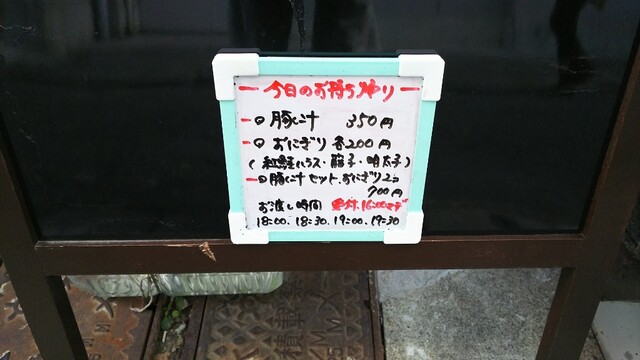 今日のお持ち帰り
豚汁 350円
おにぎり 各200円
(紅鮭ハラス・筋子・明太子)
豚汁セット、おにぎり2コ
700円
お渡し時間 受付、16:00マデ
18:00、18:30、19:00、19:30
積載禁